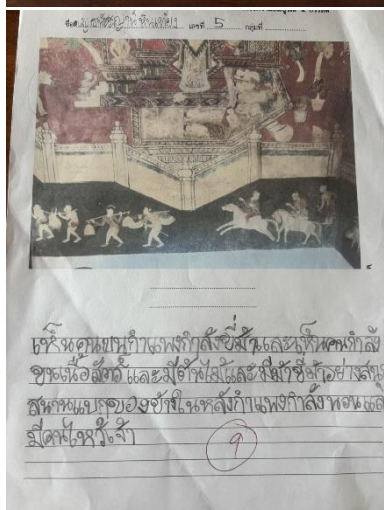 ชื่อ เลขที่ 5 กลุ่มที่
เห็นคนบนกำแพงกำลังขี่ม้าและเห็นคนกำลัง
ขนเนื้อสัตว์และมีต้นไม้และมีม้าขี่ม้าอย่าง
แบกของข้างในหลังกำแพงกำลังนอน
มีคนไหว้เจ้า
9